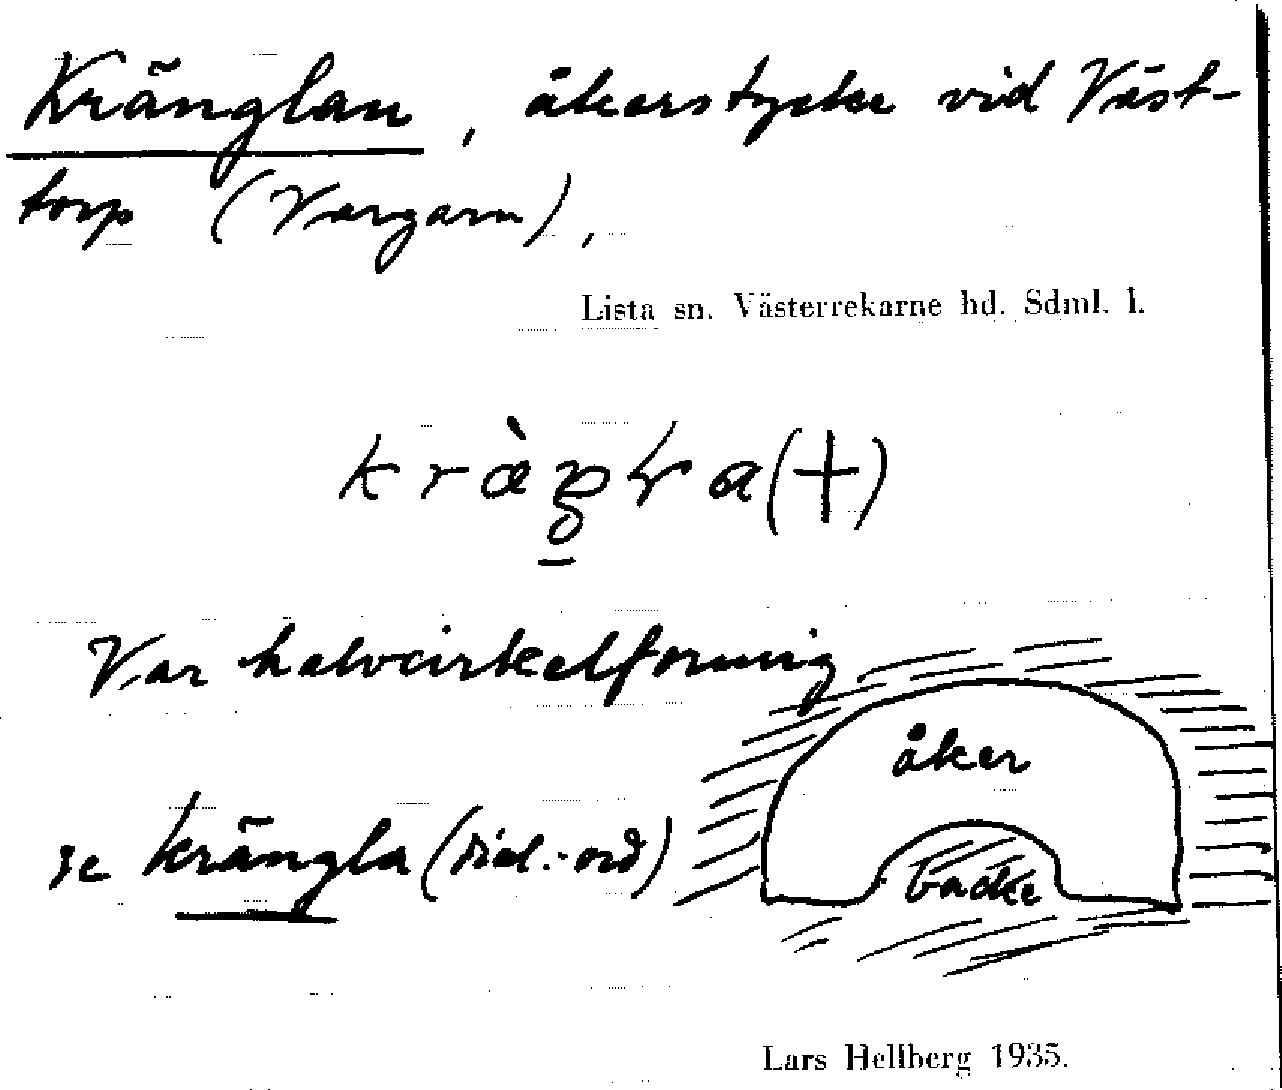 Kränglan, åkerstycke vid Väst-
torp (Vargarn),
Lista sn. Västerrekarne hd. Sdml. l.
Var halvcirkelformig
åker
se krängla (dial.-ord)
backe
Lars Hellberg 1935.